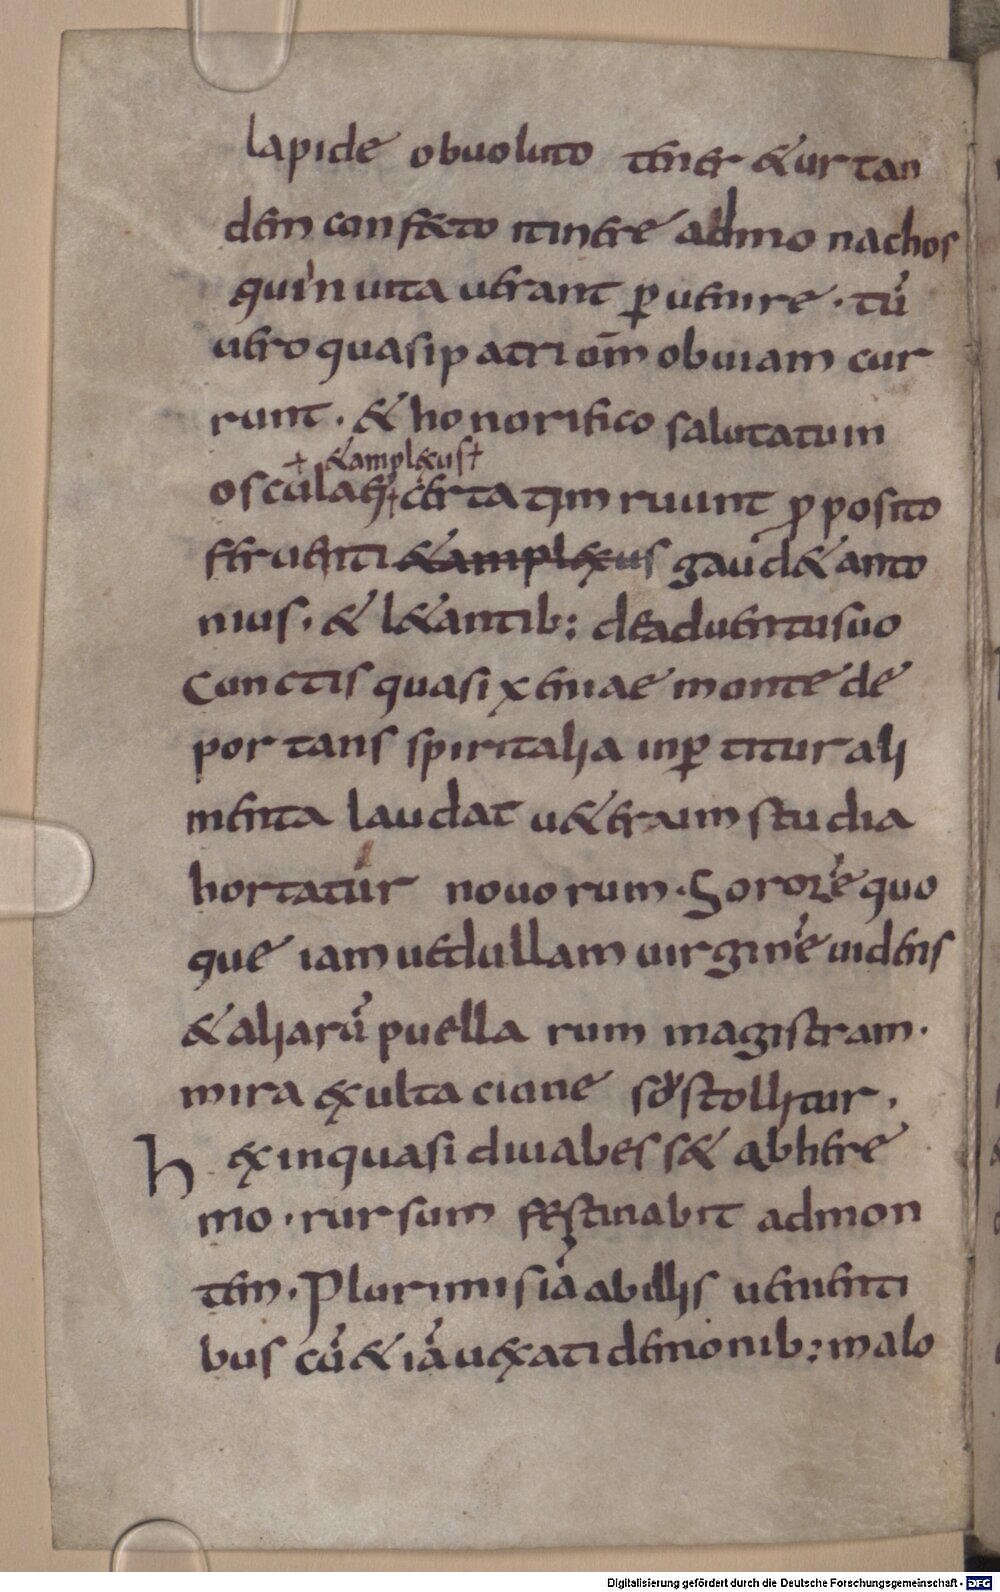 lapide obuoluto tener & ur tan
dem conf&to itinere admo nachos
qui in uita uerant ꝑ uenire . tū
uero quasi p atri om̄ obuiam cur
runt . & ho norifico salutatum
+ & amplexus +
osculari + certa tim ruunt ꝓ posito
feruenti & amplexus gaud& anto
nius . & l&antib; de aduentu suo
Cunctis quasi xenia e monte de
por tans spiritalia inꝑ titur ali
menta laudat u&eraum studia
hortatur nouo rum . Sororē quo
que iam uedullam uirginē uidens
& aliarū puella rum magistram .
mira exulta cione s& stollitur .
H exin quasi diu abes s& ab here
mo . rursum festinabit ad mon
tem . Plurimis iā ab illis uenienti
bus cū & iā uexati demonib; malo
Digitalisierung gefördert durch die Deutsche Forschungsgemeinschaft - DFG